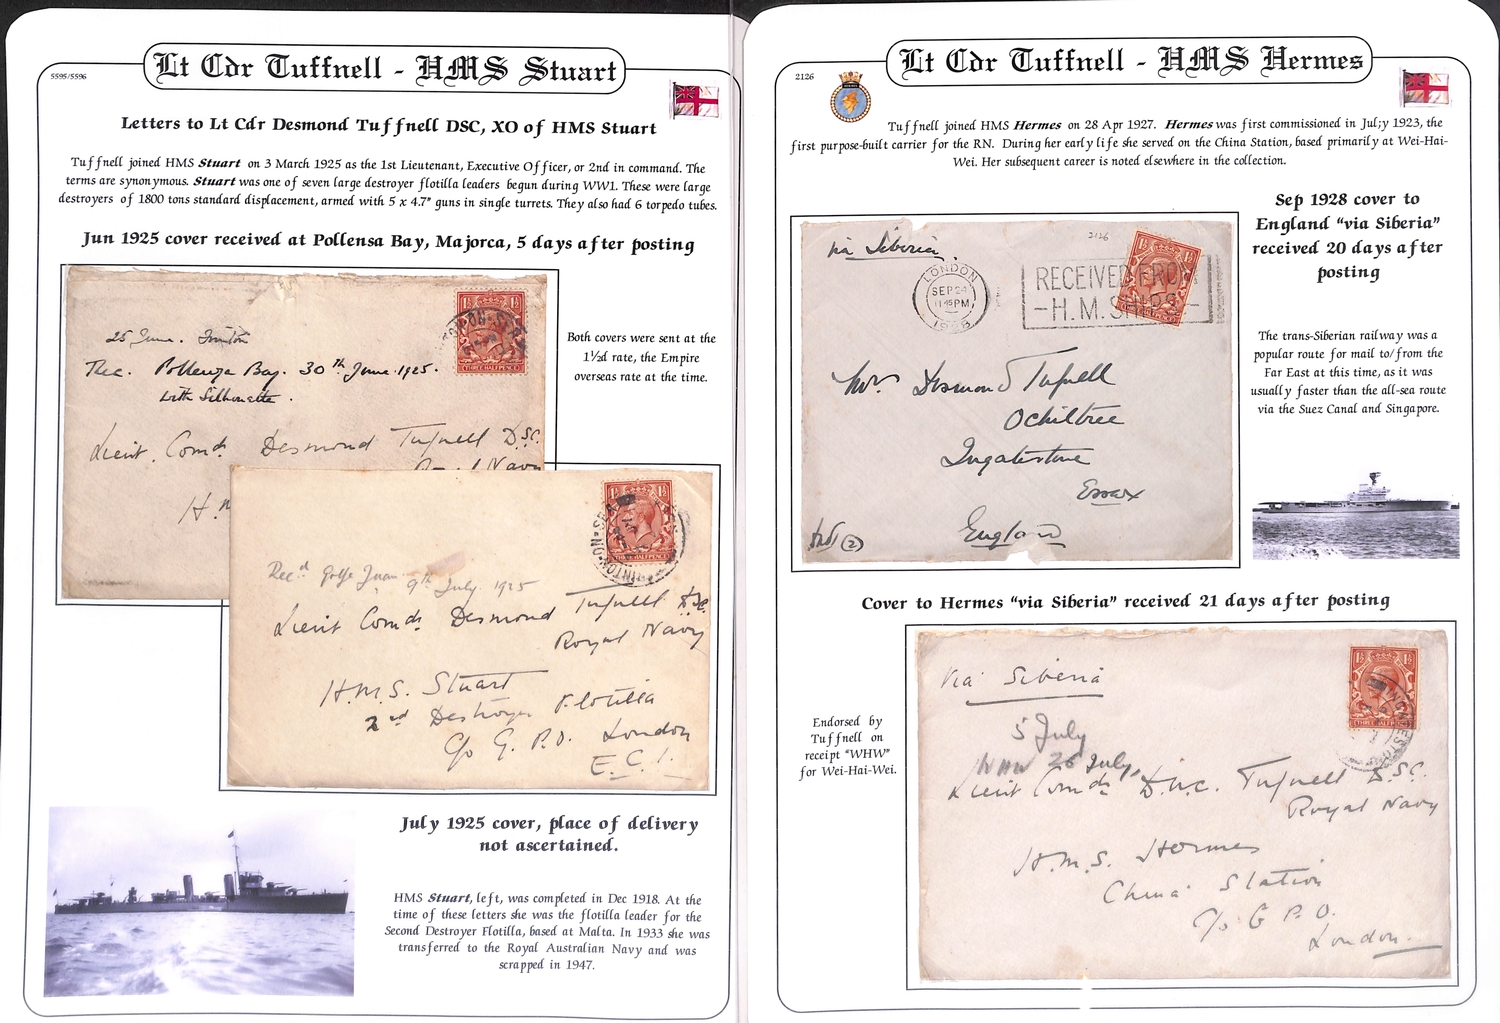 5595/5596
Lt Cdr Tuffnell - HMS Stuart
Letters to Lt Cdr Desmond Tuffnell DSC, XO of HMS Stuart
Tuffnell joined HMS Stuart on 3 March 1925 as the 1st Lieutenant, Executive Officer, or 2nd in command. The
terms are synonymous. Stuart was one of seven large destroyer flotilla leaders begun during WW1. These were large
destroyers of 1800 tons standard displacement, armed with 5 x 4.7" guns in single turrets. They also had 6 torpedo tubes.
Jun 1925 cover received at Pollensa Bay, Majorca, 5 days after posting
25 June. Frinton
Rec. Pollenza Bay. 30th June 1925.
with Silhouette.
Lieut. Comdr Desmond Tufnell D.S.C.
Royal Navy
H.M
THREE HALFPENCE
Both covers were sent at the
1½d rate, the Empire
overseas rate at the time.
THREE HALFPENCE
Recd Golfe Juan 9th July 1925
Lieut Comdr Desmond Tufnell D.S.C.
Royal Navy
H.M.S. Stuart
2nd Destroyer Flotilla
c/o G.P.O. London
E.C.1.
July 1925 cover, place of delivery
not ascertained.
HMS Stuart, left, was completed in Dec 1918. At the
time of these letters she was the flotilla leader for the
Second Destroyer Flotilla, based at Malta. In 1933 she was
transferred to the Royal Australian Navy and was
scrapped in 1947.
2126
Lt Cdr Tuffnell - HMS Hermes
Tuffnell joined HMS Hermes on 28 Apr 1927. Hermes was first commissioned in Jul;y 1923, the
first purpose-built carrier for the RN. During her early life she served on the China Station, based primarily at Wei-Hai-
Wei. Her subsequent career is noted elsewhere in the collection.
Sep 1928 cover to
England "via Siberia"
received 20 days after
posting
via Siberia.
2126
LONDON
SEP 24
11 45 PM
1928
RECEIVED FROM
-H.M. SHIPS-
Mrs Desmond Tufnell
Ochiltree
Ingatestone
Essex
England
The trans-Siberian railway was a
popular route for mail to/from the
Far East at this time, as it was
usually faster than the all-sea route
via the Suez Canal and Singapore.
Cover to Hermes "via Siberia" received 21 days after posting
Endorsed by
Tuffnell on
receipt "WHW"
for Wei-Hai-Wei.
Via Siberia
THREE HALFPENCE
5 July
WHW 26 July,
Lieut Comdr D.A.C. Tufnell D.S.C.
Royal Navy
H.M.S. Hermes
China Station
c/o G P O.
London.